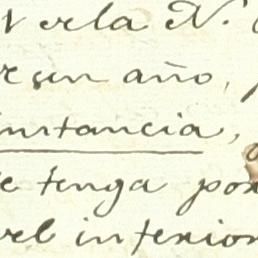 verla N.
un año,
instancia,
tenga por
el inferior